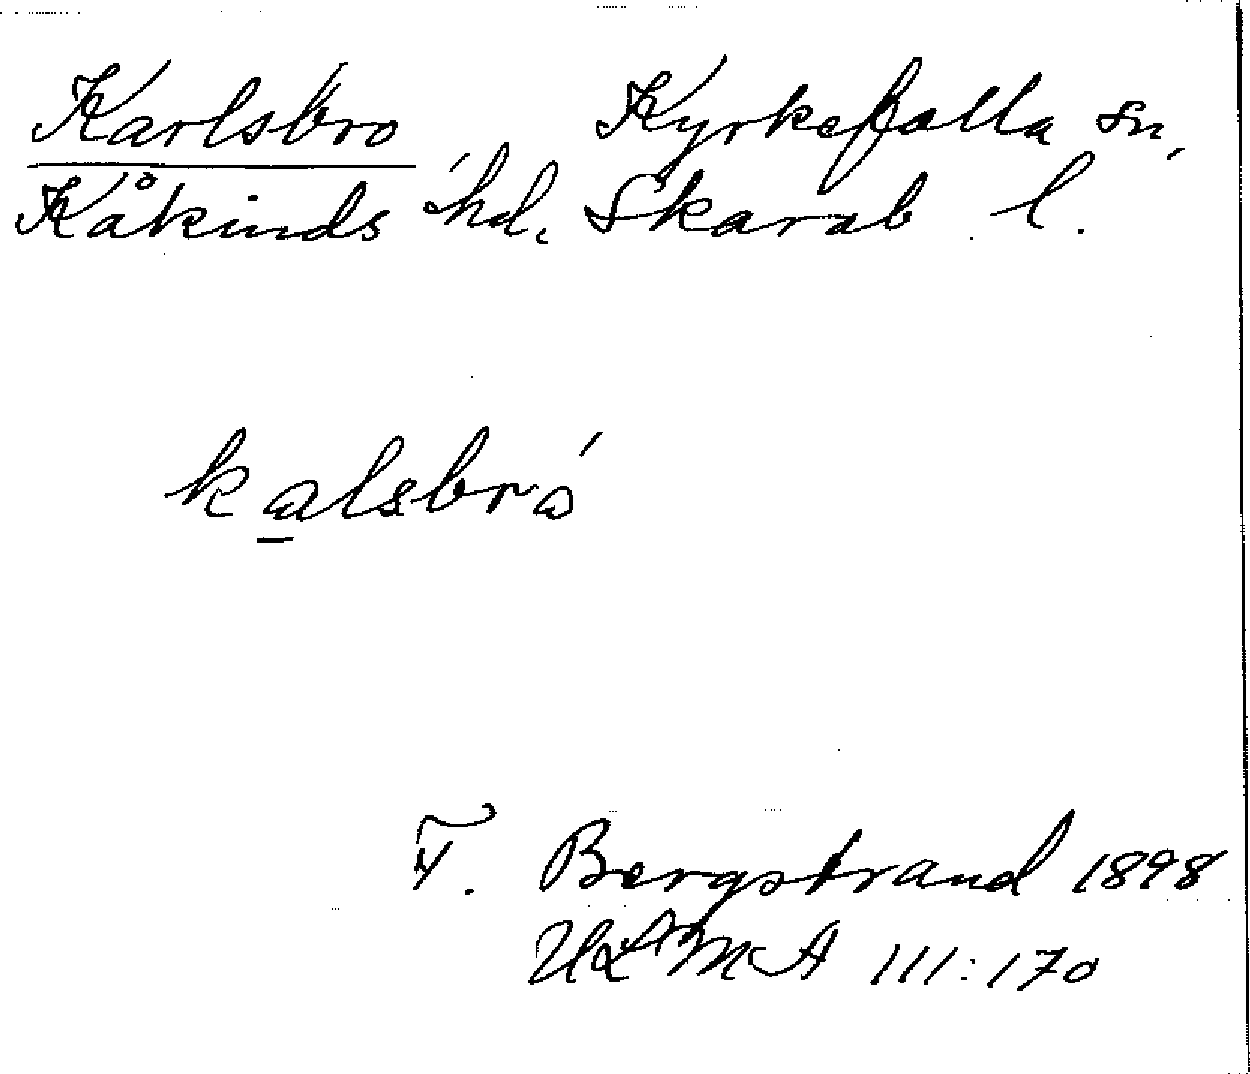 Karlsbro Kyrkefalla sn,
Kåkinds hd. Skarab. l.
kalsbrá
T. Bergstrand 1898
ULMA 111:170